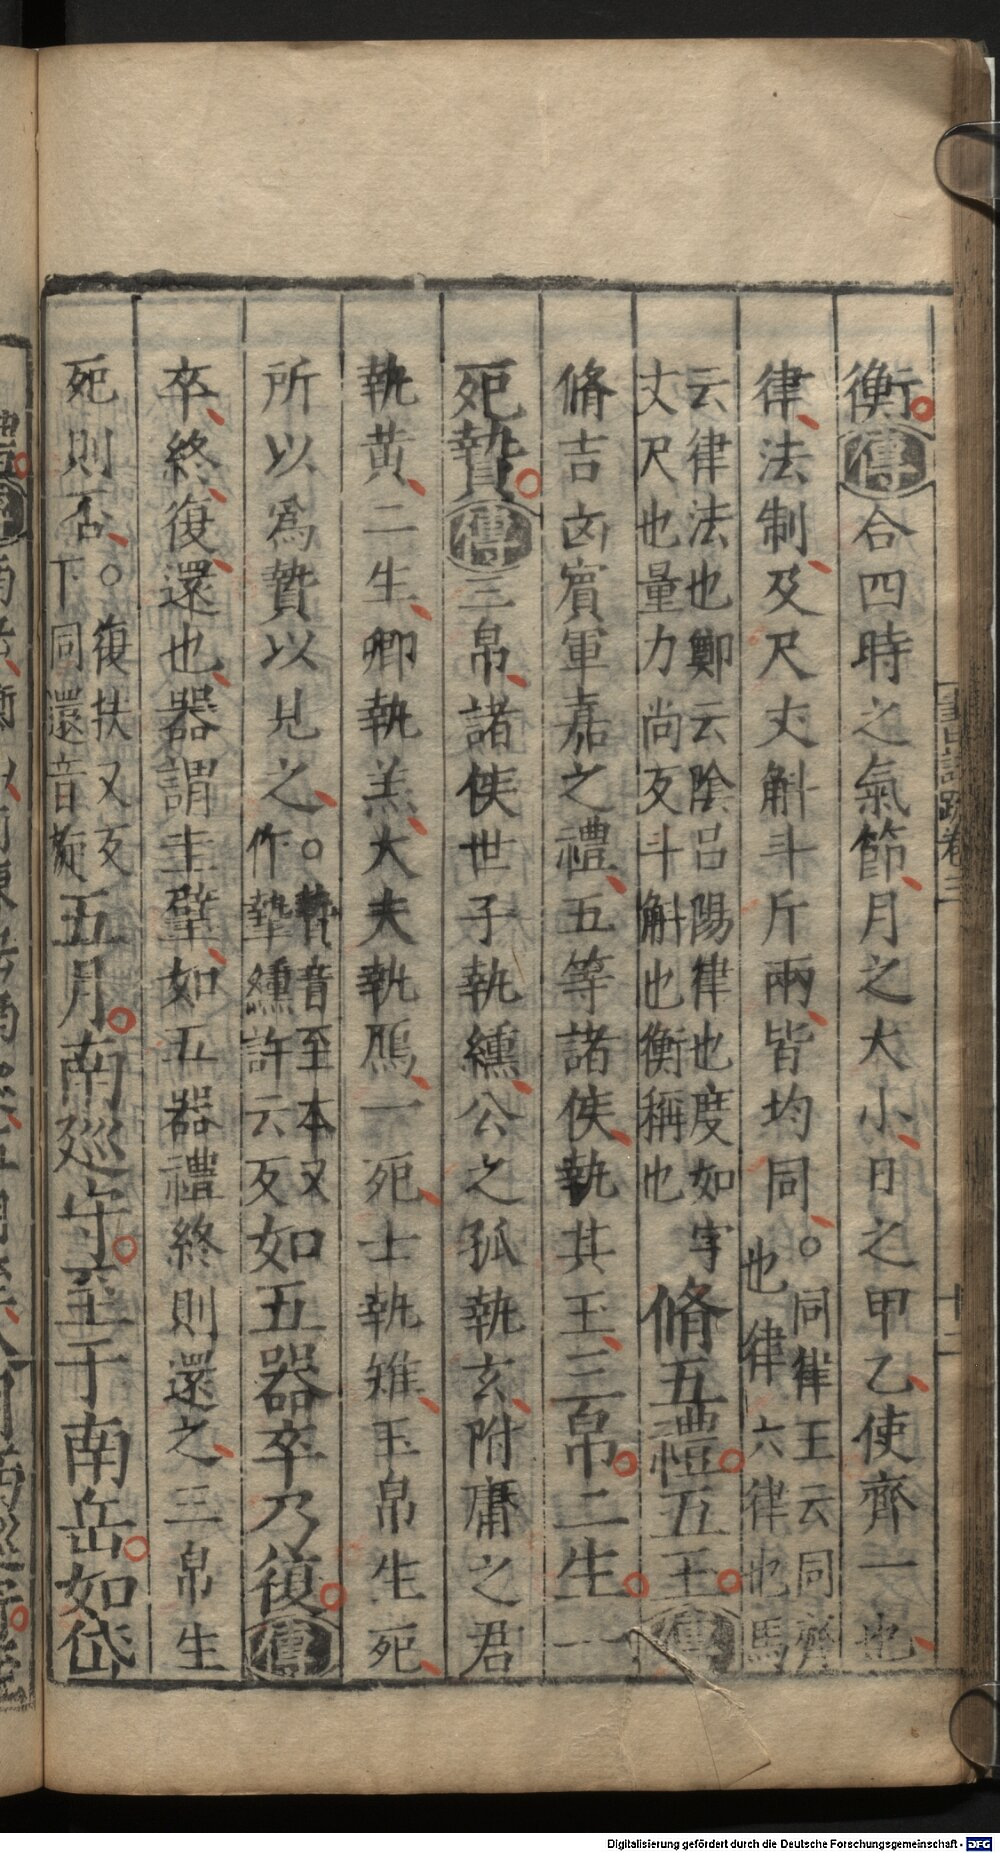 衡傳合四時之氣節月之大小日之甲乙使齊一也
律法制及尺丈斛斗斤兩皆均同○同律王云同齊也律六律也馬
云律法也鄭云陰呂陽律也度如字丈尺也量力尚反斗斛也衡稱也脩五禮五玉傳
脩吉凶賓軍嘉之禮五等諸侯執其玉三帛二生一
死贄傳三帛諸侯世子執纁公之孤執玄附庸之君
執黄二生卿執羔大夫執鴈一死士執雉玉帛生死
所以爲贄以見之○贄音至本又作摯纁許云反如五器卒乃復傳
卒終復還也器謂圭璧如五器禮終則還之三帛生
死則否○復扶又反下同還音旋五月南廵守至于南岳如岱
書註疏卷三
十二
Digitalisierung gefördert durch die Deutsche Forschungsgemeinschaft - DFG